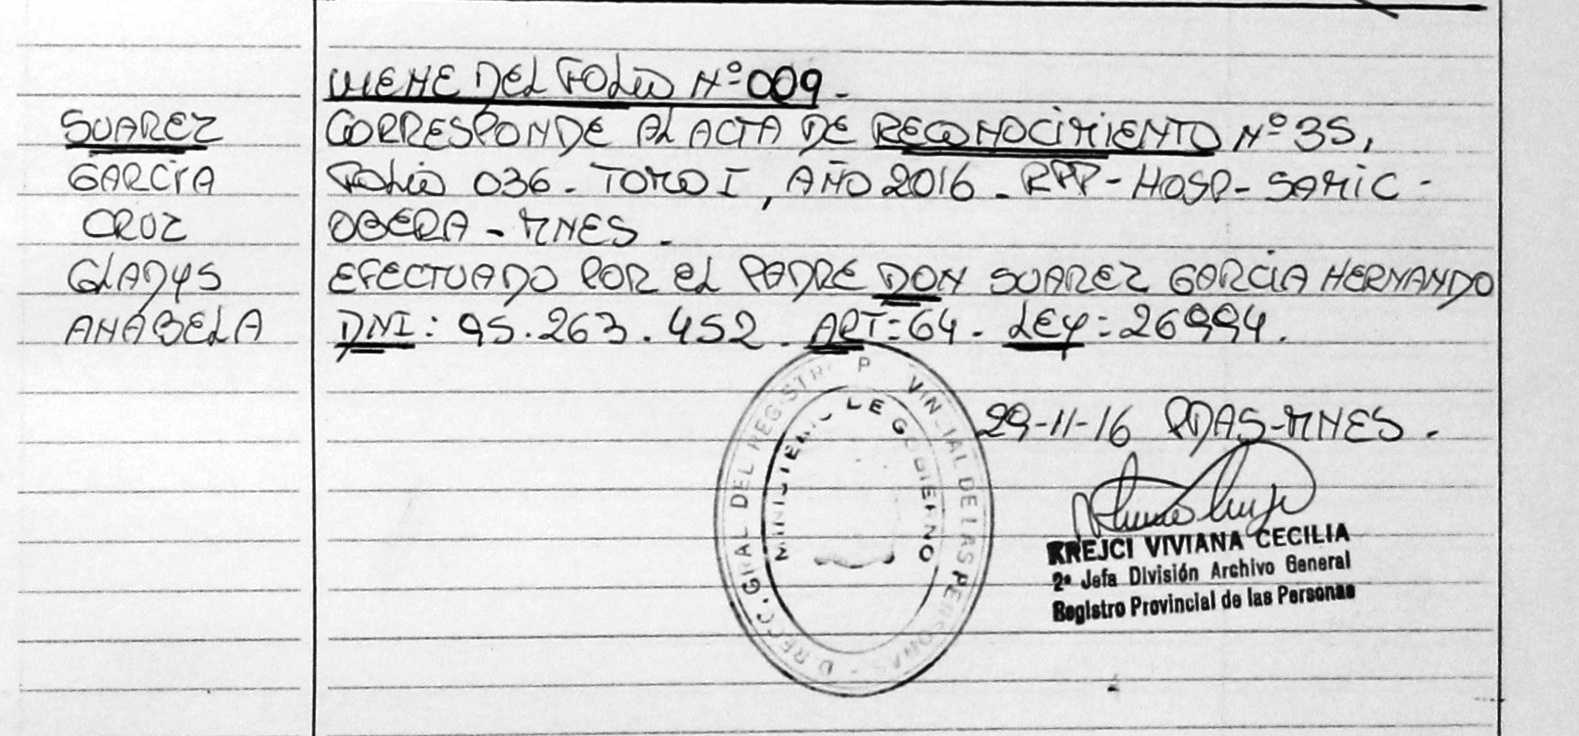 VIENE DEL FOLIO Nº 009.-
SUAREZ
GARCIA
CRUZ
GLADYS
ANABELA
CORRESPONDE AL ACTA DE RECONOCIMIENTO Nº 35,
FOLIO 036- TOMO I, AÑO 2016- RPP-HOSP-SAMIC-
OBERA-MNES.
EFECTUADO POR EL PADRE DON SUAREZ GARCIA HERNANDO
DNI: 95.263.452. ART=64- LEY: 26994.
29-11-16 PDAS-MNES.
KREJCI VIVIANA CECILIA
2ª Jefa División Archivo General
Registro Provincial de las Personas
DIRECC. GRAL. DEL REGISTRO PROVINCIAL DE LAS PERSONAS
MINISTERIO DE GOBIERNO